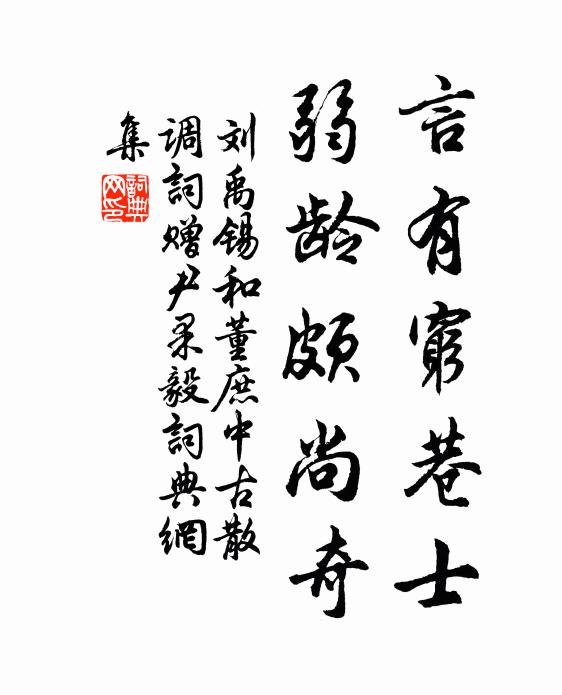 言有窮巷士
弱龄颇尚奇
刘禹锡和董庶中古散
调詞赠尹果毅詞典網
集
詞典
网印